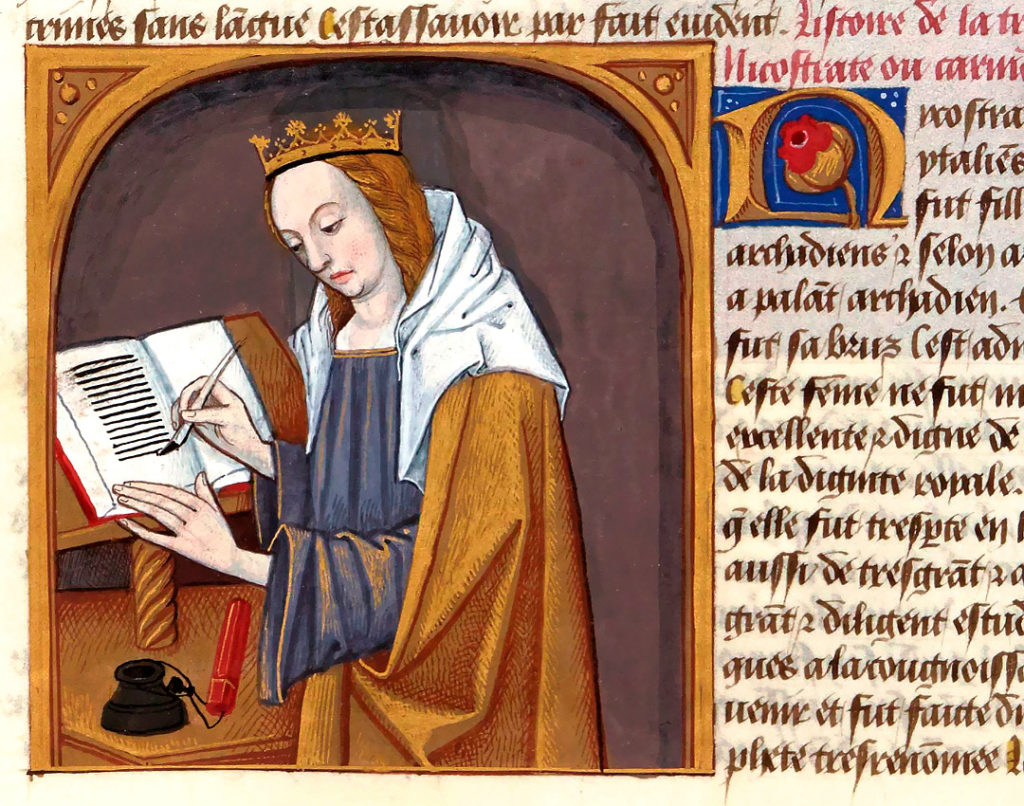 trines sans lāgue Cestassavoir par fait evidēt. Listoire de la
Nicostrate ou carm
Nicostra
ytaliēs
fut fill
archadiens ⁊ selon a
a palāt archadien.
fut sa bruz Cest adi
Ceste fēme ne fut
excellente ⁊ digne de
de la dignite royale.
q̄ elle fut tresꝑte en l
aussi de tresgrāt ⁊ a
grāt ⁊ diligent estud
ques a la cougnoiss
venir et fut faicte
phete tresrenōmee